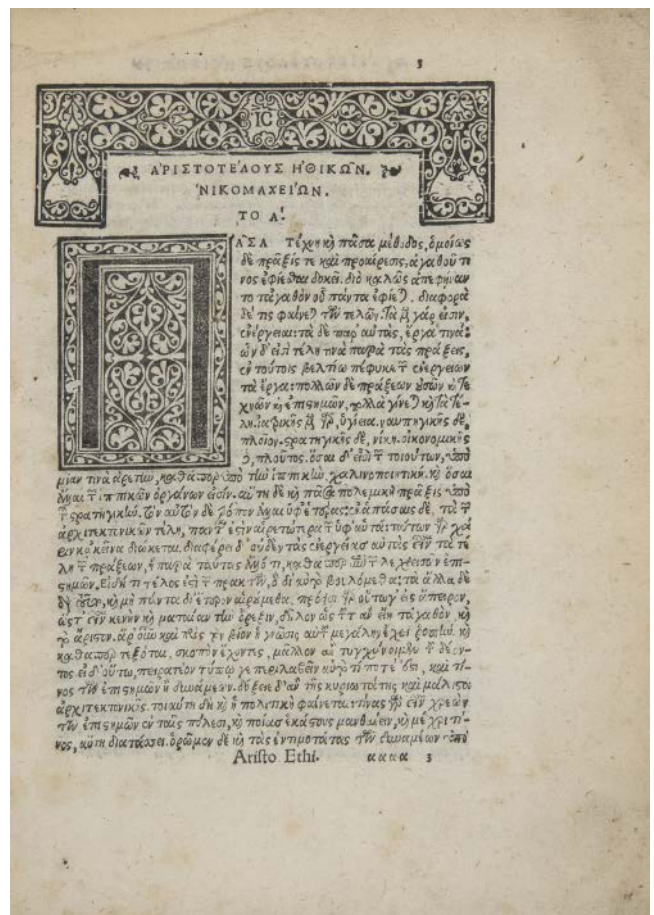 3
IC
ΑΡΙΣΤΟΤΕΛΟΥΣ ΗΘΙΚΩΝ.
ΝΙΚΟΜΑΧΕΙΩΝ.
ΤΟ Α.
ΠΑΣΑ τέχνη καὶ πᾶσα μέθοδος, ὁμοίως
δὲ πρᾶξίς τε καὶ προαίρεσις, ἀγαθοῦ τι
νὸς ἐφίεσθαι δοκεῖ. διὸ καλῶς ἀπεφήναν
το τἀγαθὸν οὗ πάντα ἐφίεται. διαφορὰ
δέ τις φαίνεται τῶν τελῶν. τὰ μὲν γάρ εἰσιν,
ἐνέργειαι: τὰ δὲ παρ' αὐτὰς, ἔργα τινά:
ὧν δ' εἰσὶ τέλη τινὰ παρὰ τὰς πράξεις,
ἐν τούτοις βελτίω πέφυκε τῶν ἐνεργειῶν
τὰ ἔργα: πολλῶν δὲ πράξεων οὐσῶν καὶ τε
χνῶν καὶ ἐπιστημῶν, πολλὰ γίνεται καὶ τὰ τέ-
λη. ἰατρικῆς μὲν γὰρ, ὑγίεια. ναυπηγικῆς δὲ,
πλοῖον. στρατηγικῆς δὲ, νίκη. οἰκονομικῆς
δὲ, πλοῦτος. ὅσαι δ' εἰσὶ τῶν τοιούτων, ὑπὸ
μίαν τινὰ ἀρετὴν, καθάπερ ὑπὸ τὴν ἱππικὴν, χαλινοποιητικὴ. καὶ ὅσαι
ἄλλαι τῶν ἱππικῶν ὀργάνων εἰσίν. αὕτη δὲ καὶ πᾶσα πολεμικὴ πρᾶξις ὑπὸ
τὴν στρατηγικήν. τὸν αὐτὸν δὲ τρόπον ἄλλαι ὑφ' ἑτέρας: ἐν ἁπάσαις δὲ, τὰ τῶν
ἀρχιτεκτονικῶν τέλη, πάντων ἐστὶν αἱρετώτερα τῶν ὑφ' αὑτά: τούτων γὰρ χά
ριν κἀκεῖνα διώκεται. διαφέρει δ' οὐδὲν τὰς ἐνεργείας αὐτὰς εἶναι τὰ τέ
λη τῶν πράξεων, ἢ παρὰ ταύτας ἄλλό τι, καθάπερ ἐπὶ τῶν λεχθεισῶν ἐπι-
στημῶν. Εἰ δή τι τέλος ἐστὶ τῶν πρακτῶν, ὃ δι' αὑτὸ βουλόμεθα: τὰ ἄλλα δὲ
διὰ τοῦτο, καὶ μὴ πάντα δι' ἕτερον αἱρούμεθα. πρόεισι γὰρ οὕτω γ' εἰς ἄπειρον,
ὥστ' εἶναι κενὴν καὶ ματαίαν τὴν ὄρεξιν, δῆλον ὡς τοῦτ' ἂν εἴη τἀγαθὸν, καὶ
τὸ ἄριστον. ἆρ' οὖν καὶ πρὸς τὸν βίον ἡ γνῶσις αὐτοῦ μεγάλην ἔχει ῥοπήν. καὶ
καθάπερ τοξόται, σκοπὸν ἔχοντες, μᾶλλον ἂν τυγχάνοιμεν τοῦ δέον-
τος εἰ δ' οὕτω, πειρατέον τύπῳ γε περιλαβεῖν αὐτὸ τί ποτέ ἐστι, καὶ τί-
νος τῶν ἐπιστημῶν ἢ δυνάμεων. δόξειε δ' ἂν τῆς κυριωτάτης καὶ μάλιστα
ἀρχιτεκτονικῆς. τοιαύτη δὴ καὶ ἡ πολιτικὴ φαίνεται: τίνας γὰρ εἶναι χρεὼν
τῶν ἐπιστημῶν ἐν ταῖς πόλεσι, καὶ ποίας ἑκάστους μανθάνειν, καὶ μέχρι τί-
νος, αὕτη διατάσσει. ὁρῶμεν δὲ καὶ τὰς ἐντιμοτάτας τῶν δυνάμεων ὑπὸ
Aristo Ethi. αααα 3